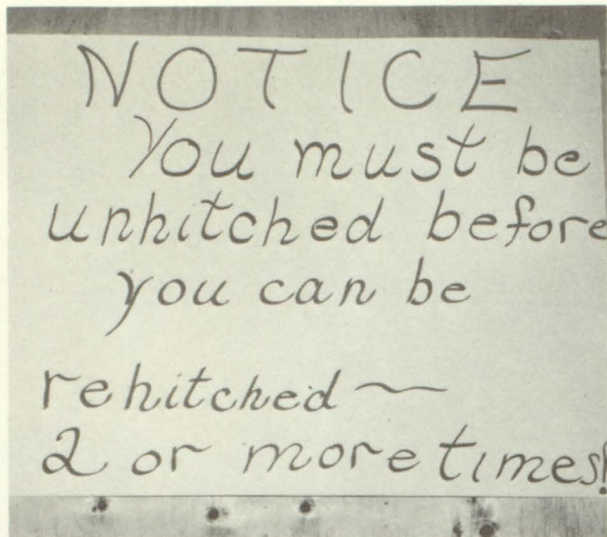 NOTICE
You must be
unhitched before
you can be
rehitched ~
2 or more times!